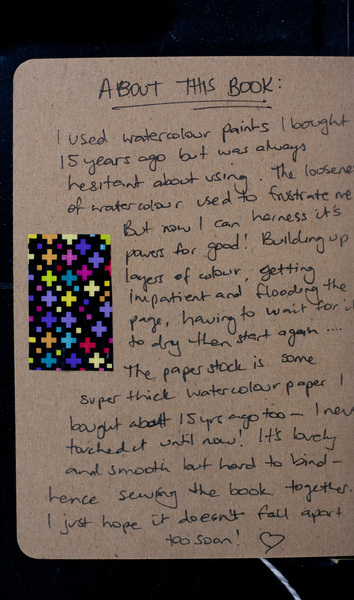 ABOUT THIS BOOK:
I used watercolour paints I bought
15 years ago but was always
hesitant about using. The loosene
of watercolour used to frustrate me
But now I can harness it's
powers for good! Building up
layers of colour, getting
impatient and flooding the
page, having to wait for i
to dry then start again ....
The paper stock is some
super thick watercolour paper I
bought about 15 yrs ago too - I nev
touched it until now! It's lovely
and smooth but hard to bind -
hence sewing the book together.
I just hope it doesn't fall apart
too soon! ♡